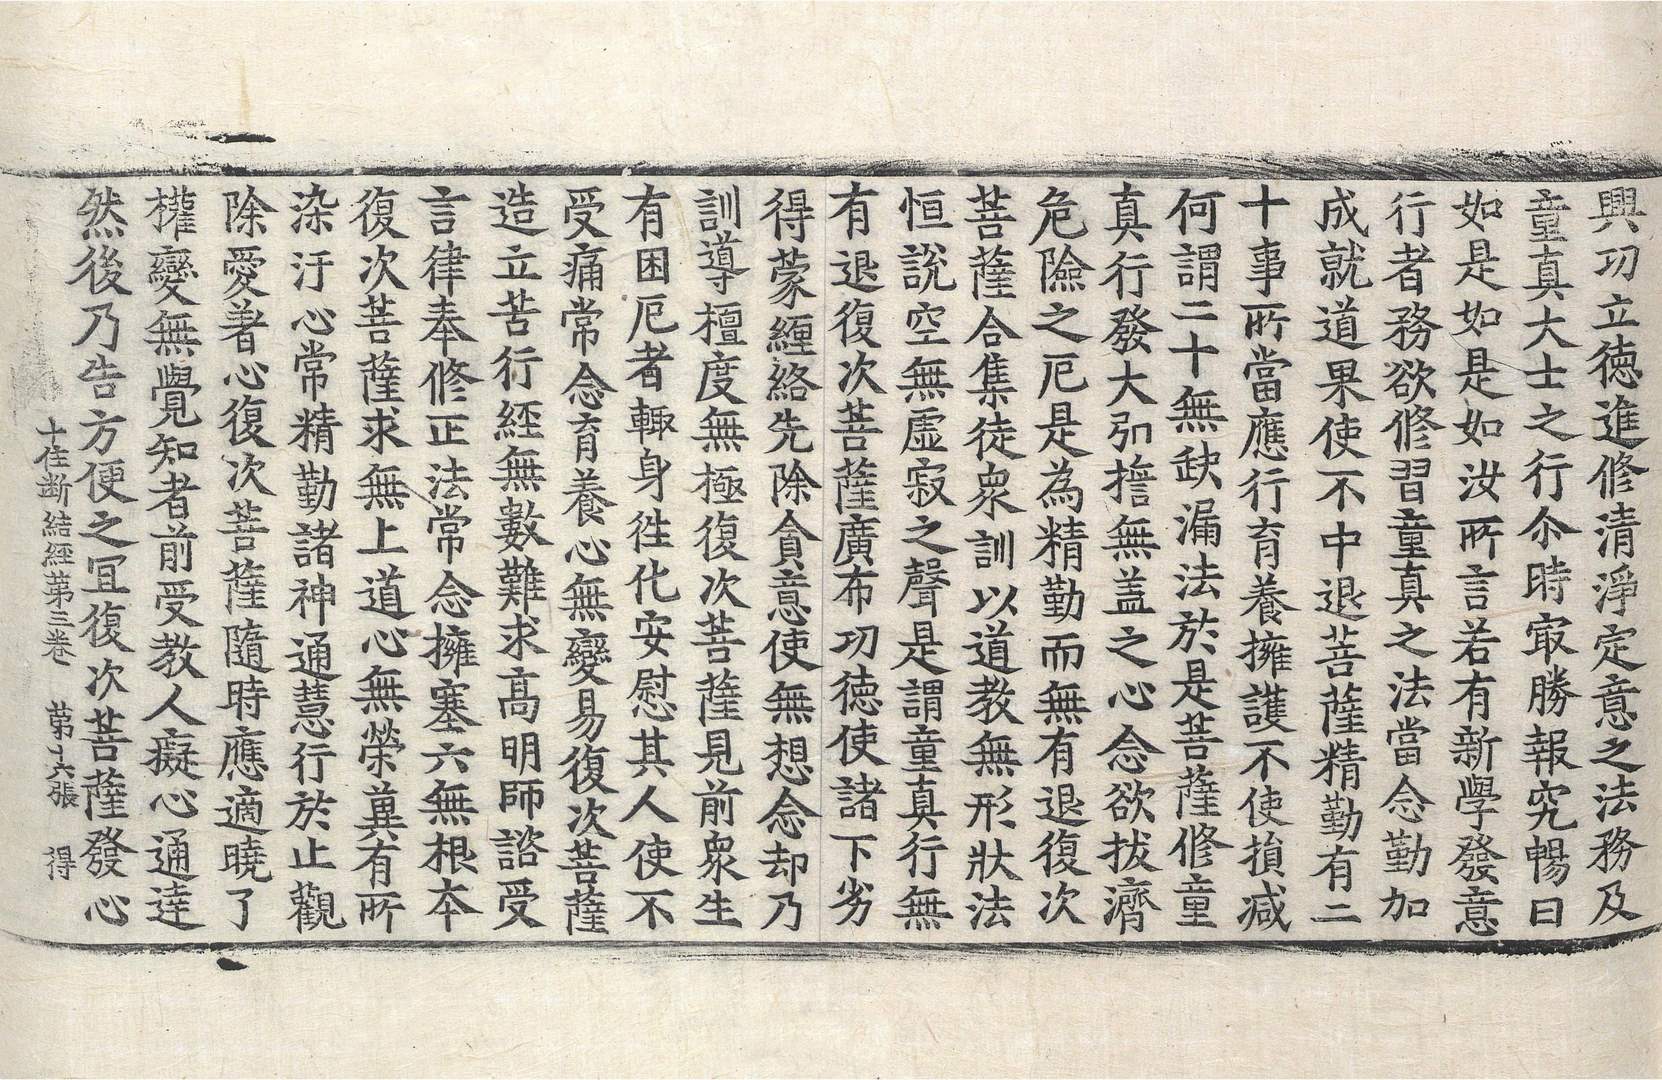 興功立德進修清淨定意之法務及
童真大士之行尒時㝡勝報究暢曰
如是如是如汝所言若有新學發意
行者務欲修習童真之法當念勤加
成就道果使不中退菩薩精勤有二
十事所當應行育養擁護不使損減
何謂二十無缺漏法於是菩薩修童
真行發大弘擔無盖之心念欲拔濟
危險之厄是為精勤而無有退復次
菩薩合集徒衆訓以道教無形狀法
恒說空無虛寂之聲是謂童真行無
有退復次菩薩廣布功德使諸下劣
得蒙纏絡先除貪意使無想念却乃
訓導檀度無極復次菩薩見前衆生
有困厄者輙身徃化安慰其人使不
受痛常念育養心無變易復次菩薩
造立苦行經無數難求高明師諮受
言律奉修正法常念擁塞六無根本
復次菩薩求無上道心無榮兾有所
染汙心常精勤諸神通慧行於止觀
除愛著心復次菩薩隨時應適曉了
權變無覺知者前受教人癡心通達
然後乃告方便之冝復次菩薩發心
十住斷結經苐三卷　苐十六張　得